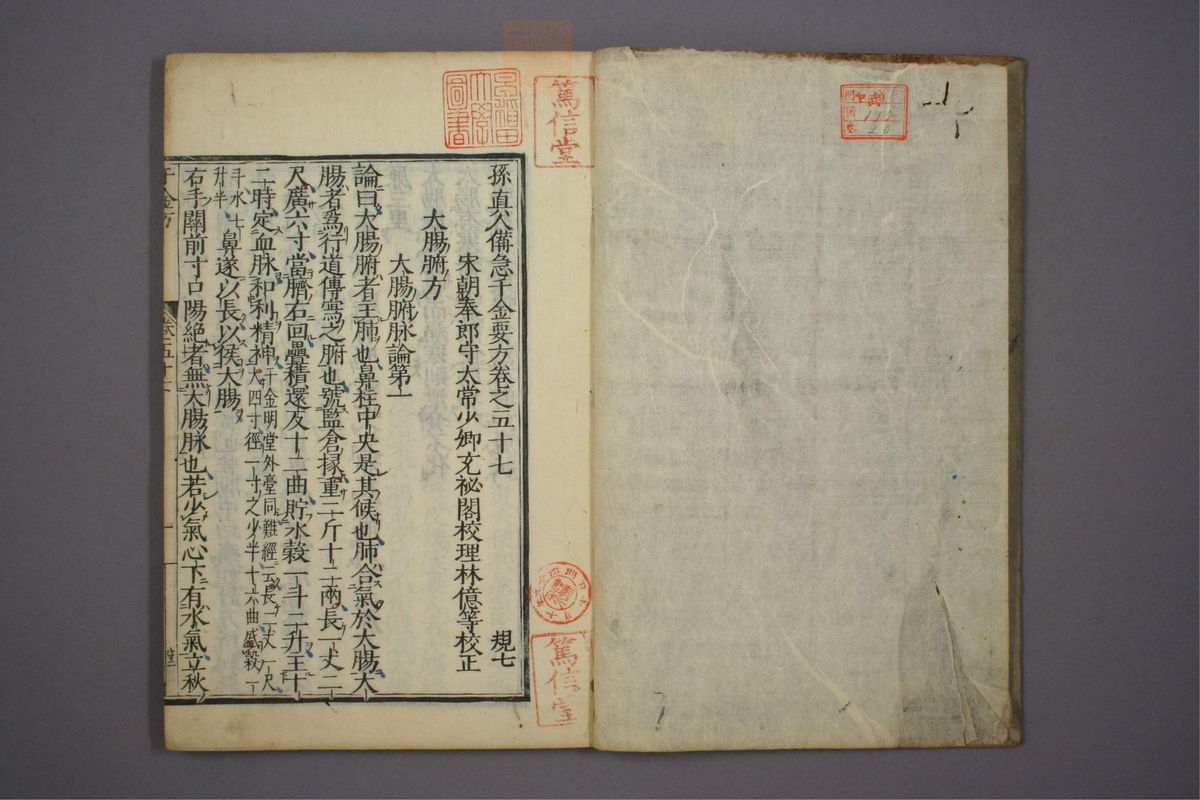 孫真人備急千金要方卷之五十七　規七
宋朝奉郎守太常少卿充祕閣校理林億等校正
大腸腑方
大腸腑脉論第一
論曰大腸腑者主肺也鼻柱中央是其候也肺合氣於大腸大
腸者為行道傳寫之腑也號監倉掾重二斤十二兩長一丈二
尺廣六寸當臍右回疊積還反十二曲貯水穀一斗二升主十
二時定血脉和利精神千金明堂外臺同難經云長二丈一尺
大四寸徑一寸之少半十六曲盛穀一
斗水七
升半
鼻遂以長以候大腸
右手關前寸口陽絕者無大腸脉也若少氣心下有水氣立秋
千金方
早稻田
大學
圖書
篤信堂
篤信堂